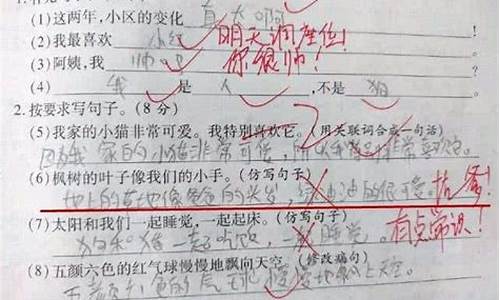 (1)这两年,小区的变化真大啊
(2)我最喜欢小红 明天调座位!
(3)阿姨,我帅吧 你很帅!
(4)我是人,不是狗
2.按要求写句子。(8分)
(5)我家的小猫非常可爱。我特别喜欢它。(用关联词合成一句话)
因为我家的小猫非常可爱,所以我非常喜欢它。
(6)枫树的叶子像我们的小手。(仿写句子)
地上的草地像爸爸的头发,绿油油的很可爱。 找爹!
(7)太阳和我们一起睡觉,一起起床。(仿写句子)
狗和猪一起吃饭,一起睡觉。 有点常识!
(8)五颜六色的红气球慢慢地飘向天空。(修改病句)
五颜六色的气球慢慢地飘上天空。